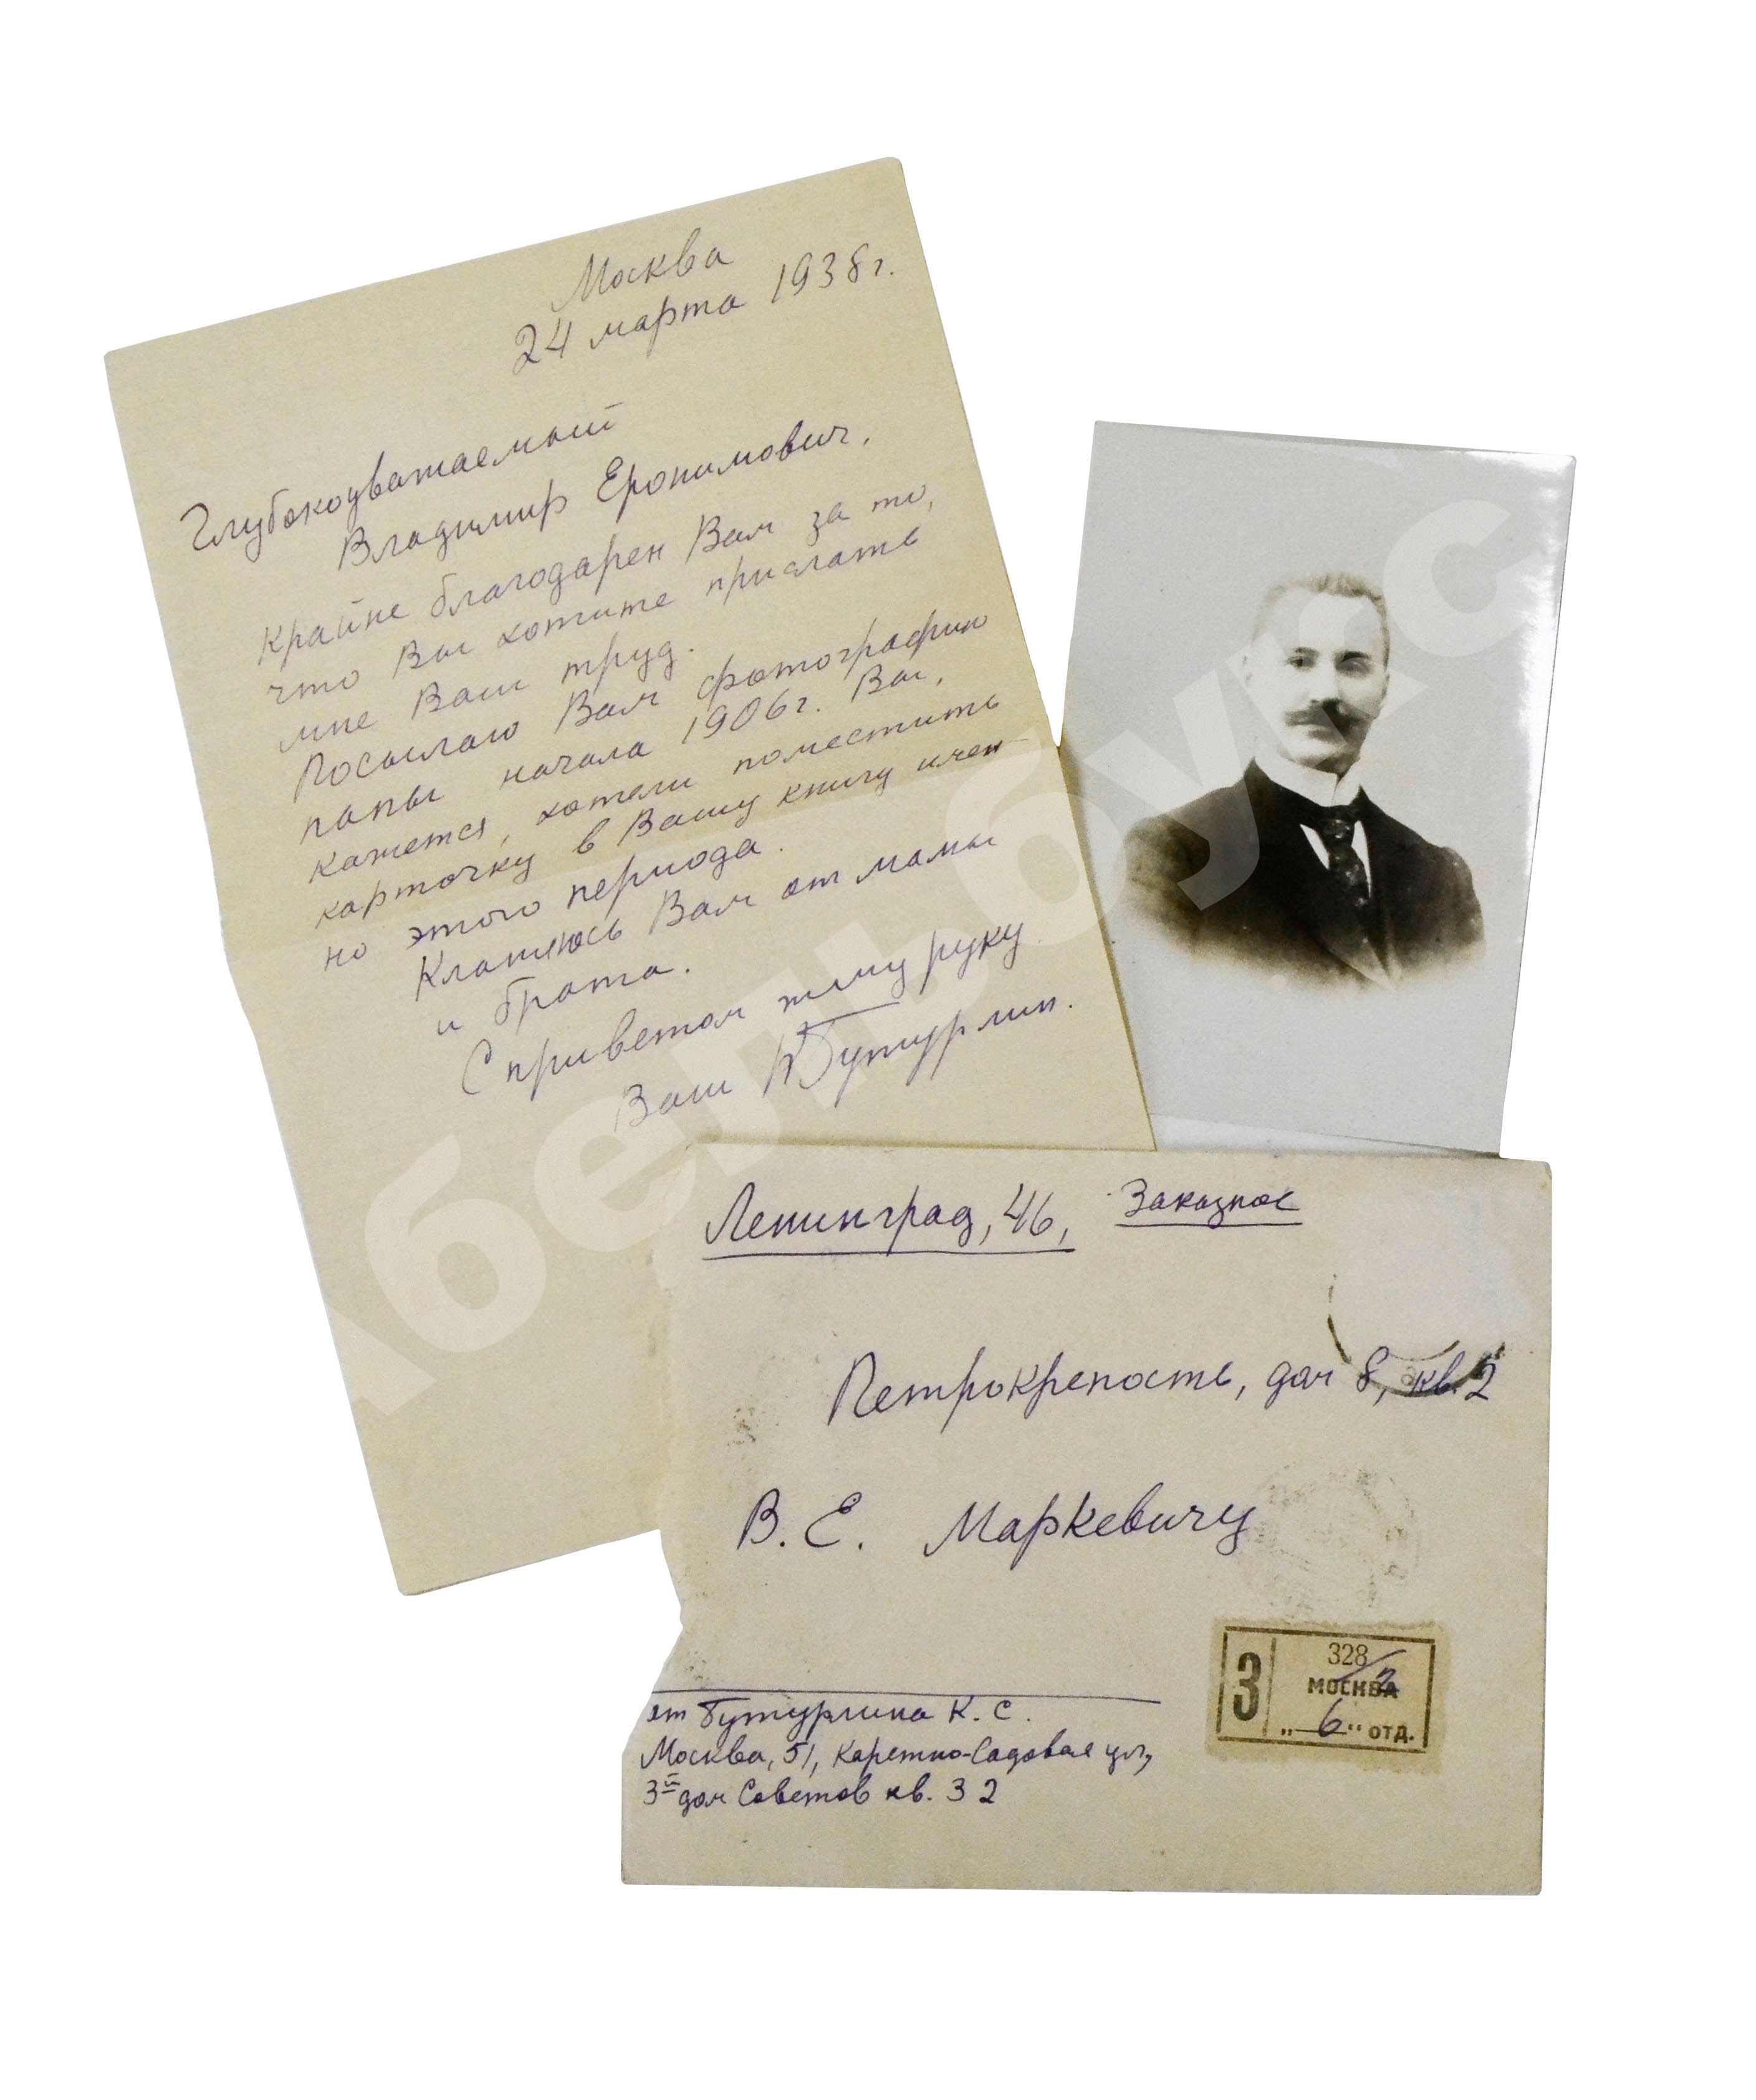 Москва
24 марта 1938 г.
Глубокоуважаемый
Владимир Еронимович,
Крайне благодарен Вам за то,
что Вы хотите прислать
мне Ваш труд.
Посылаю Вам фотографию
папы начала 1906 г. Вы,
кажется, хотели поместить
карточку в Вашу книгу имен
но этого периода.
Кланяюсь Вам от мамы
и брата.
С приветом жму руку
Ваш КБутурлин.
Ленинград, 46, Заказное
Петрокрепость, дом 8, кв. 2
В. Е. Маркевичу
3
328
МОСКВА
2
„ 6 “ ОТД.
от Бутурлина К. С.
Москва, 51, Каретно-Садовая ул,
3й дом Советов кв. 32
Абельбукс